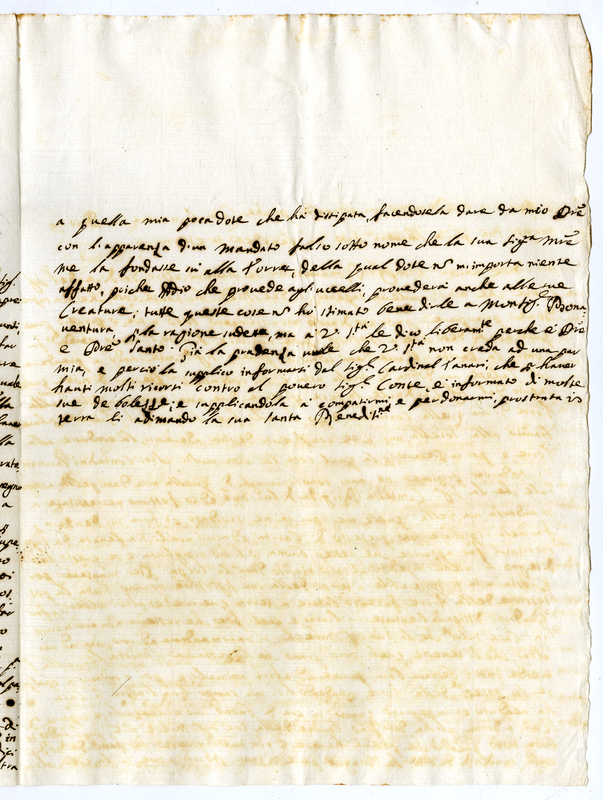 a quella mia poca dote che ha dissipata, facendosela dare da mio Pre
con l'apparenza d'un mandato falso sotto nome che la sua Sigra Mre
me la fondasse sù alla Torre, della qual dote nō m'importa niente
affatto, poiche Iddio che provede agl'uccelli, provederà anche alle sue
Creature; tutte queste cose nō hò stimato bene dirle a Monsigr Bona-
ventura p la ragione sudetta, ma a Va Stà le dico liberamte perche è Pre
e Pre Santo: Sia la prudenza vuole che Va Stà non creda ad una par
mia, e perciò la supplico informarsi dal Sigr Cardinal Tanari, che p haver
hauti molti ricorsi contro al povero Sigr Conte, è informato di molte
sue debolezze; e supplicandola a compatirmi, e perdonarmi, prostrata in
terra li adimando la sua Santa Beneditne